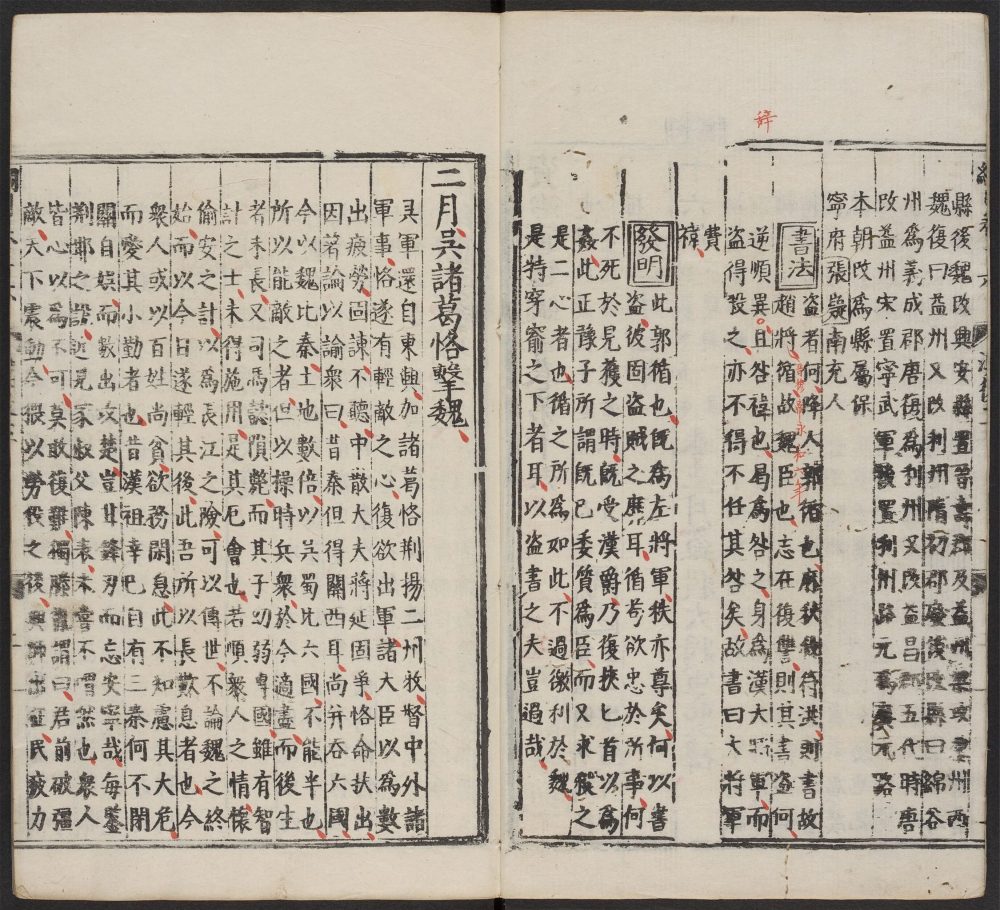 縣後魏改興安縣置晉壽郡及益州梁改州西
魏復曰益州又改利州隋初郡廢後改縣曰綿谷
州爲義成郡唐復爲利州又改益昌郡五代時唐
改益州宋置寧武軍後置利州路元爲廣元路
本朝改爲縣屬保
寧府張嶷南充人
書法 盜者何降人郭循也
逆順異且咎禕也曷爲咎之身爲漢大將軍而
趙將循故魏臣也志在復讐則其書盜何
盜得殺之亦不得不任其咎矣故書曰大將軍
費
禕
發明 此郭循也旣爲左將軍秩亦尊矣何以書
盜彼固盜賊之靡耳循苟欲忠於所事何
不死於見獲之時旣受漢爵乃復挾匕首以爲
姦此正豫子所謂旣已委質爲臣而又求殺之
是二心者也循之所爲如此不過徼利於魏
是特穿窬之下者耳以盜書之夫豈過哉
辭
二月吳諸葛恪擊魏
吳軍還自東興加諸葛恪荆揚二州牧督中外諸
軍事恪遂有輕敵之心復欲出軍諸大臣以爲數
出疲勞固諫不聽中散大夫蔣延固爭恪命扶出
因著論以諭衆曰昔秦但得關西耳尚并吞六國
今以魏比秦土地數倍以吳蜀比六國不能半也
所以能敵之者但以操時兵衆於今適盡而後生
者未長又司馬懿隕斃而其子幼弱專國雖有智
計之士未得施用是其厄會也若順衆人之情懷
偷安之計以爲長江之險可以傳世不論魏之終
始而以今日遂輕其後此吾所以長歎息者也今
衆人或以百姓尚貧欲務閑息此不知慮其大危
而愛其小勤者也昔漢祖幸已自有三秦何不閉
關自娛而數出攻楚豈甘鋒刃而忘安寧哉每鑒
荆邯之說近見家叔父陳表未嘗不喟然也衆人
皆心以爲不可莫敢復難獨滕胤謂曰君前破彊
敵天下震動今猥以勞役之後興師出征民疲力